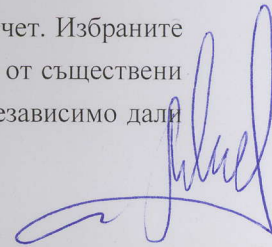 чет. Избраните
от съществени
езависимо дали